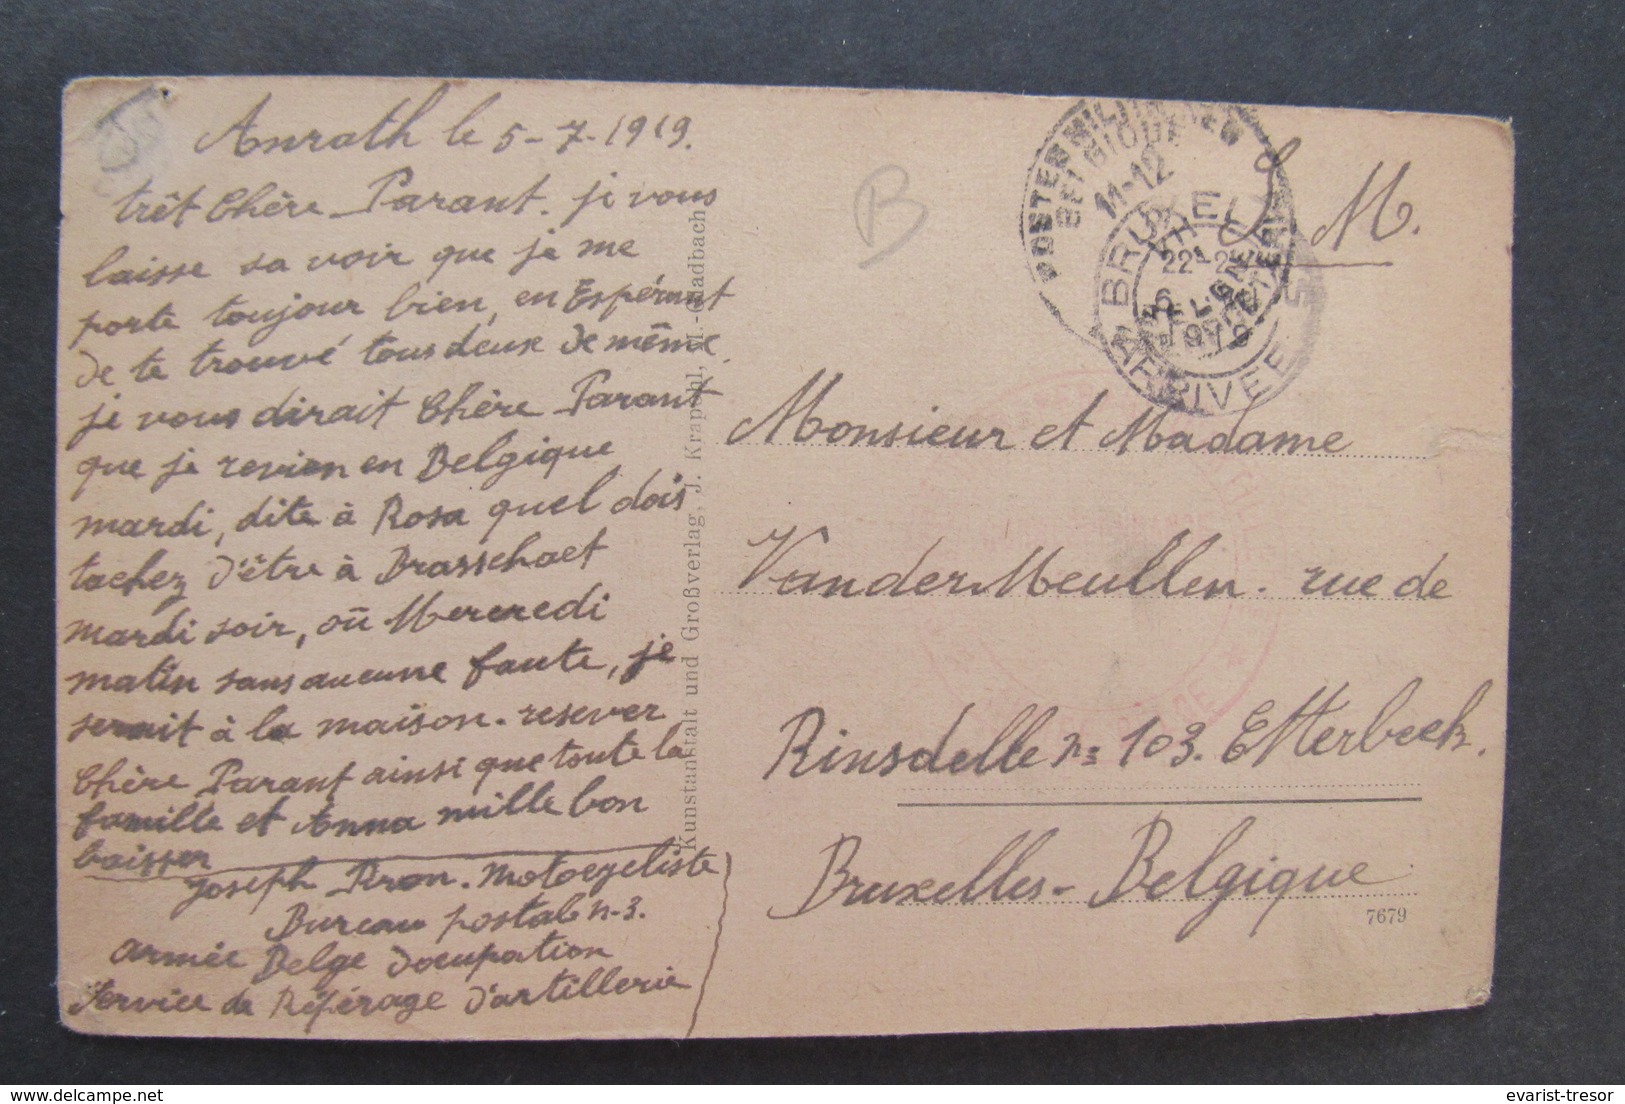 Anrath le 5-7-1919.
trêt Chère Parant. je vous
laisse sa voir que je me
porte toujour bien, en Espérant
de te trouvé tous deux de même,
je vous dirait Chère Parant
que je revien en Belgique
mardi, dite à Rosa quel dois
tachez d'être à Brasschaet
mardi soir, où Mercredi
matin sans aucune faute, je
serait à la maison. resever
Chère Parant ainsi que toute la
famille et Anna mille bon
baisser
Joseph Piron. Motocycliste
Bureau postal n-3.
armée Belge d'ocupation
Service de Répérage d'artillerie
Kunstanstalt und Großverlag, J. Krapohl, M.-Gladbach
B
S. M.
11-12
BRUXELLES
1919
ARRIVEE
Monsieur et Madame
VanderMeullen. rue de
Rinsdelle n: 103. Etterbeek.
Bruxelles- Belgique
7679
delcampe.net
evarist-tresor